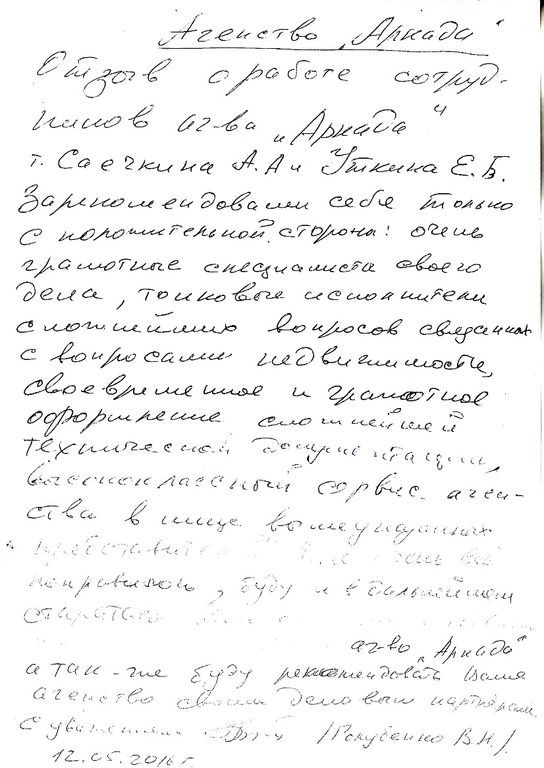 Агенство „Аркада"
Отзыв о работе сотруд-
ников аг-ва „Аркада"
т. Саечкина А.А и Уткина Е.Б.
Зарекомендовали себя только
с положительной стороны: очень
грамотные специалиста своего
дела, толковые исполнители
сложнейших вопросов связанных
с вопросами недвижимости,
своевременное и грамотное
оформление сложнейшей
технической документации,
высококлассный сервис аген-
ства в лице вышеуказанных
понравилось, буду и в дальнейшем
аг-во „Аркада"
а так-же буду рекомендовать Ваше
агенство своим деловым партнёрам.
С уважением
12.05.2016 г.